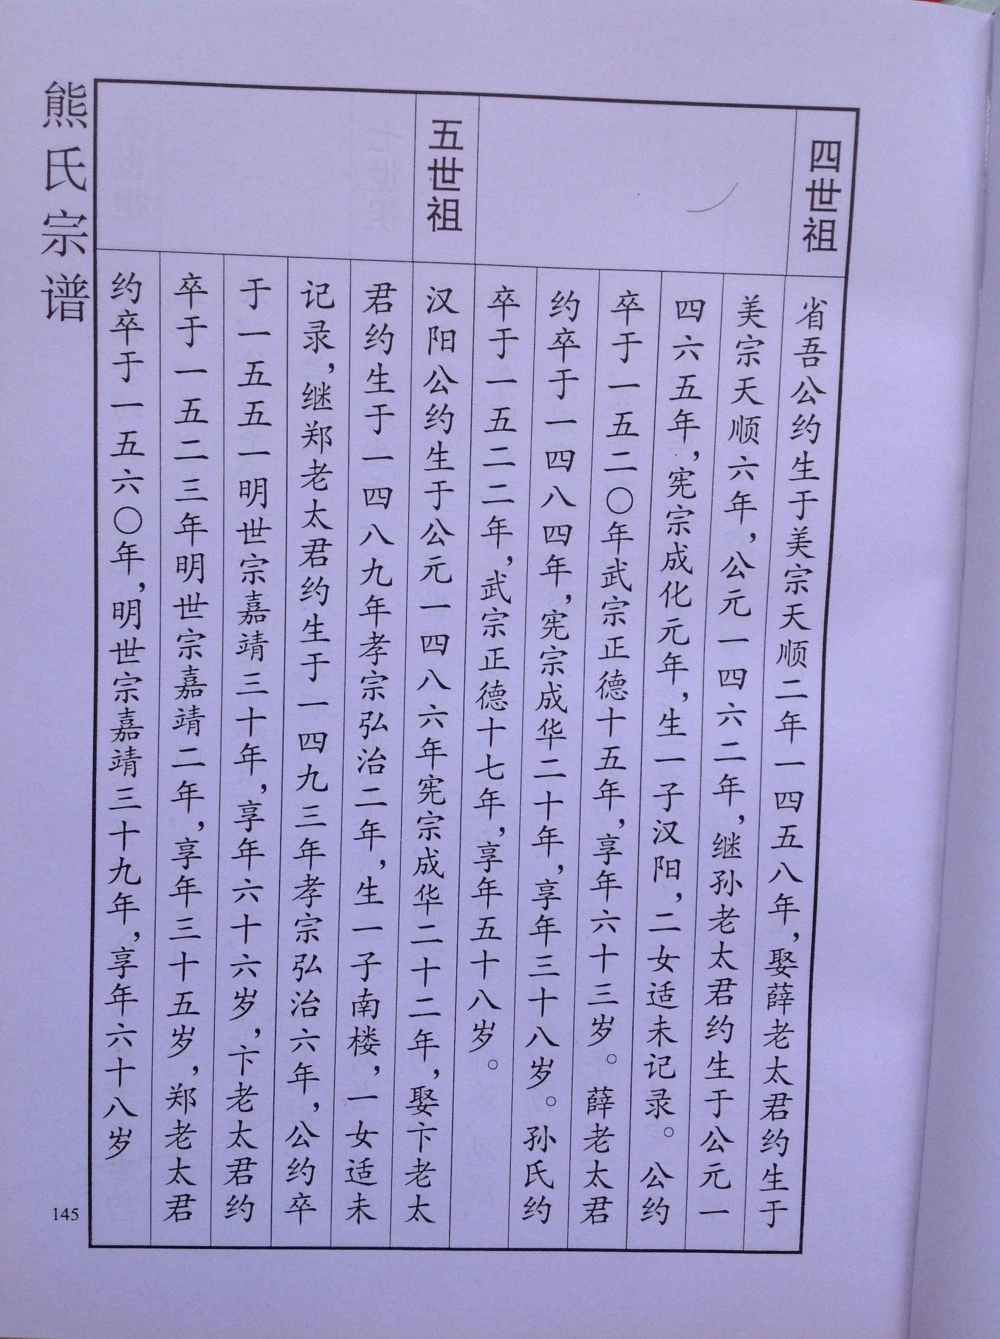 四世祖
省吾公约生于美宗天顺二年一四五八年，娶薛老太君约生于
美宗天顺六年，公元一四六二年，继孙老太君约生于公元一
四六五年，宪宗成化元年，生一子汉阳，二女适未记录。公约
卒于一五二〇年武宗正德十五年，享年六十三岁。薛老太君
约卒于一四八四年，宪宗成华二十年，享年三十八岁。孙氏约
卒于一五二二年，武宗正德十七年，享年五十八岁。
五世祖
汉阳公约生于公元一四八六年宪宗成华二十二年，娶卞老太
君约生于一四八九年孝宗弘治二年，生一子南楼，一女适未
记录，继郑老太君约生于一四九三年孝宗弘治六年，公约卒
于一五五一明世宗嘉靖三十年，享年六十六岁，卞老太君约
卒于一五二三年明世宗嘉靖二年，享年三十五岁，郑老太君
约卒于一五六〇年，明世宗嘉靖三十九年，享年六十八岁
熊氏宗谱
145